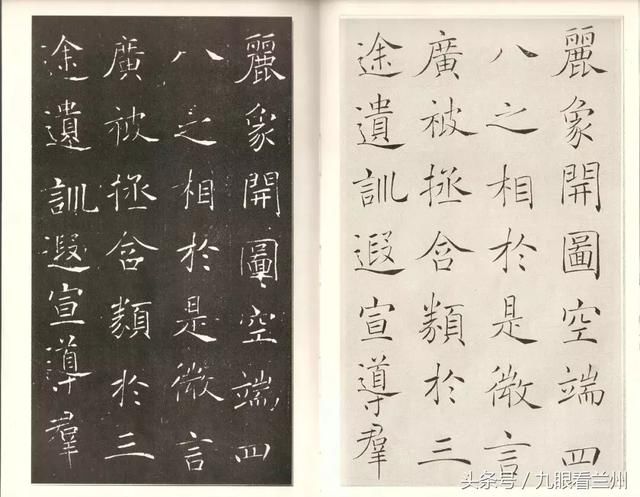 麗象開圖空端四
八之相於是微言
廣被拯含類於三
途遺訓遐宣導群
麗象開圖空端四
八之相於是微言
廣被拯含類於三
途遺訓遐宣導群
头条号/九眼看兰州